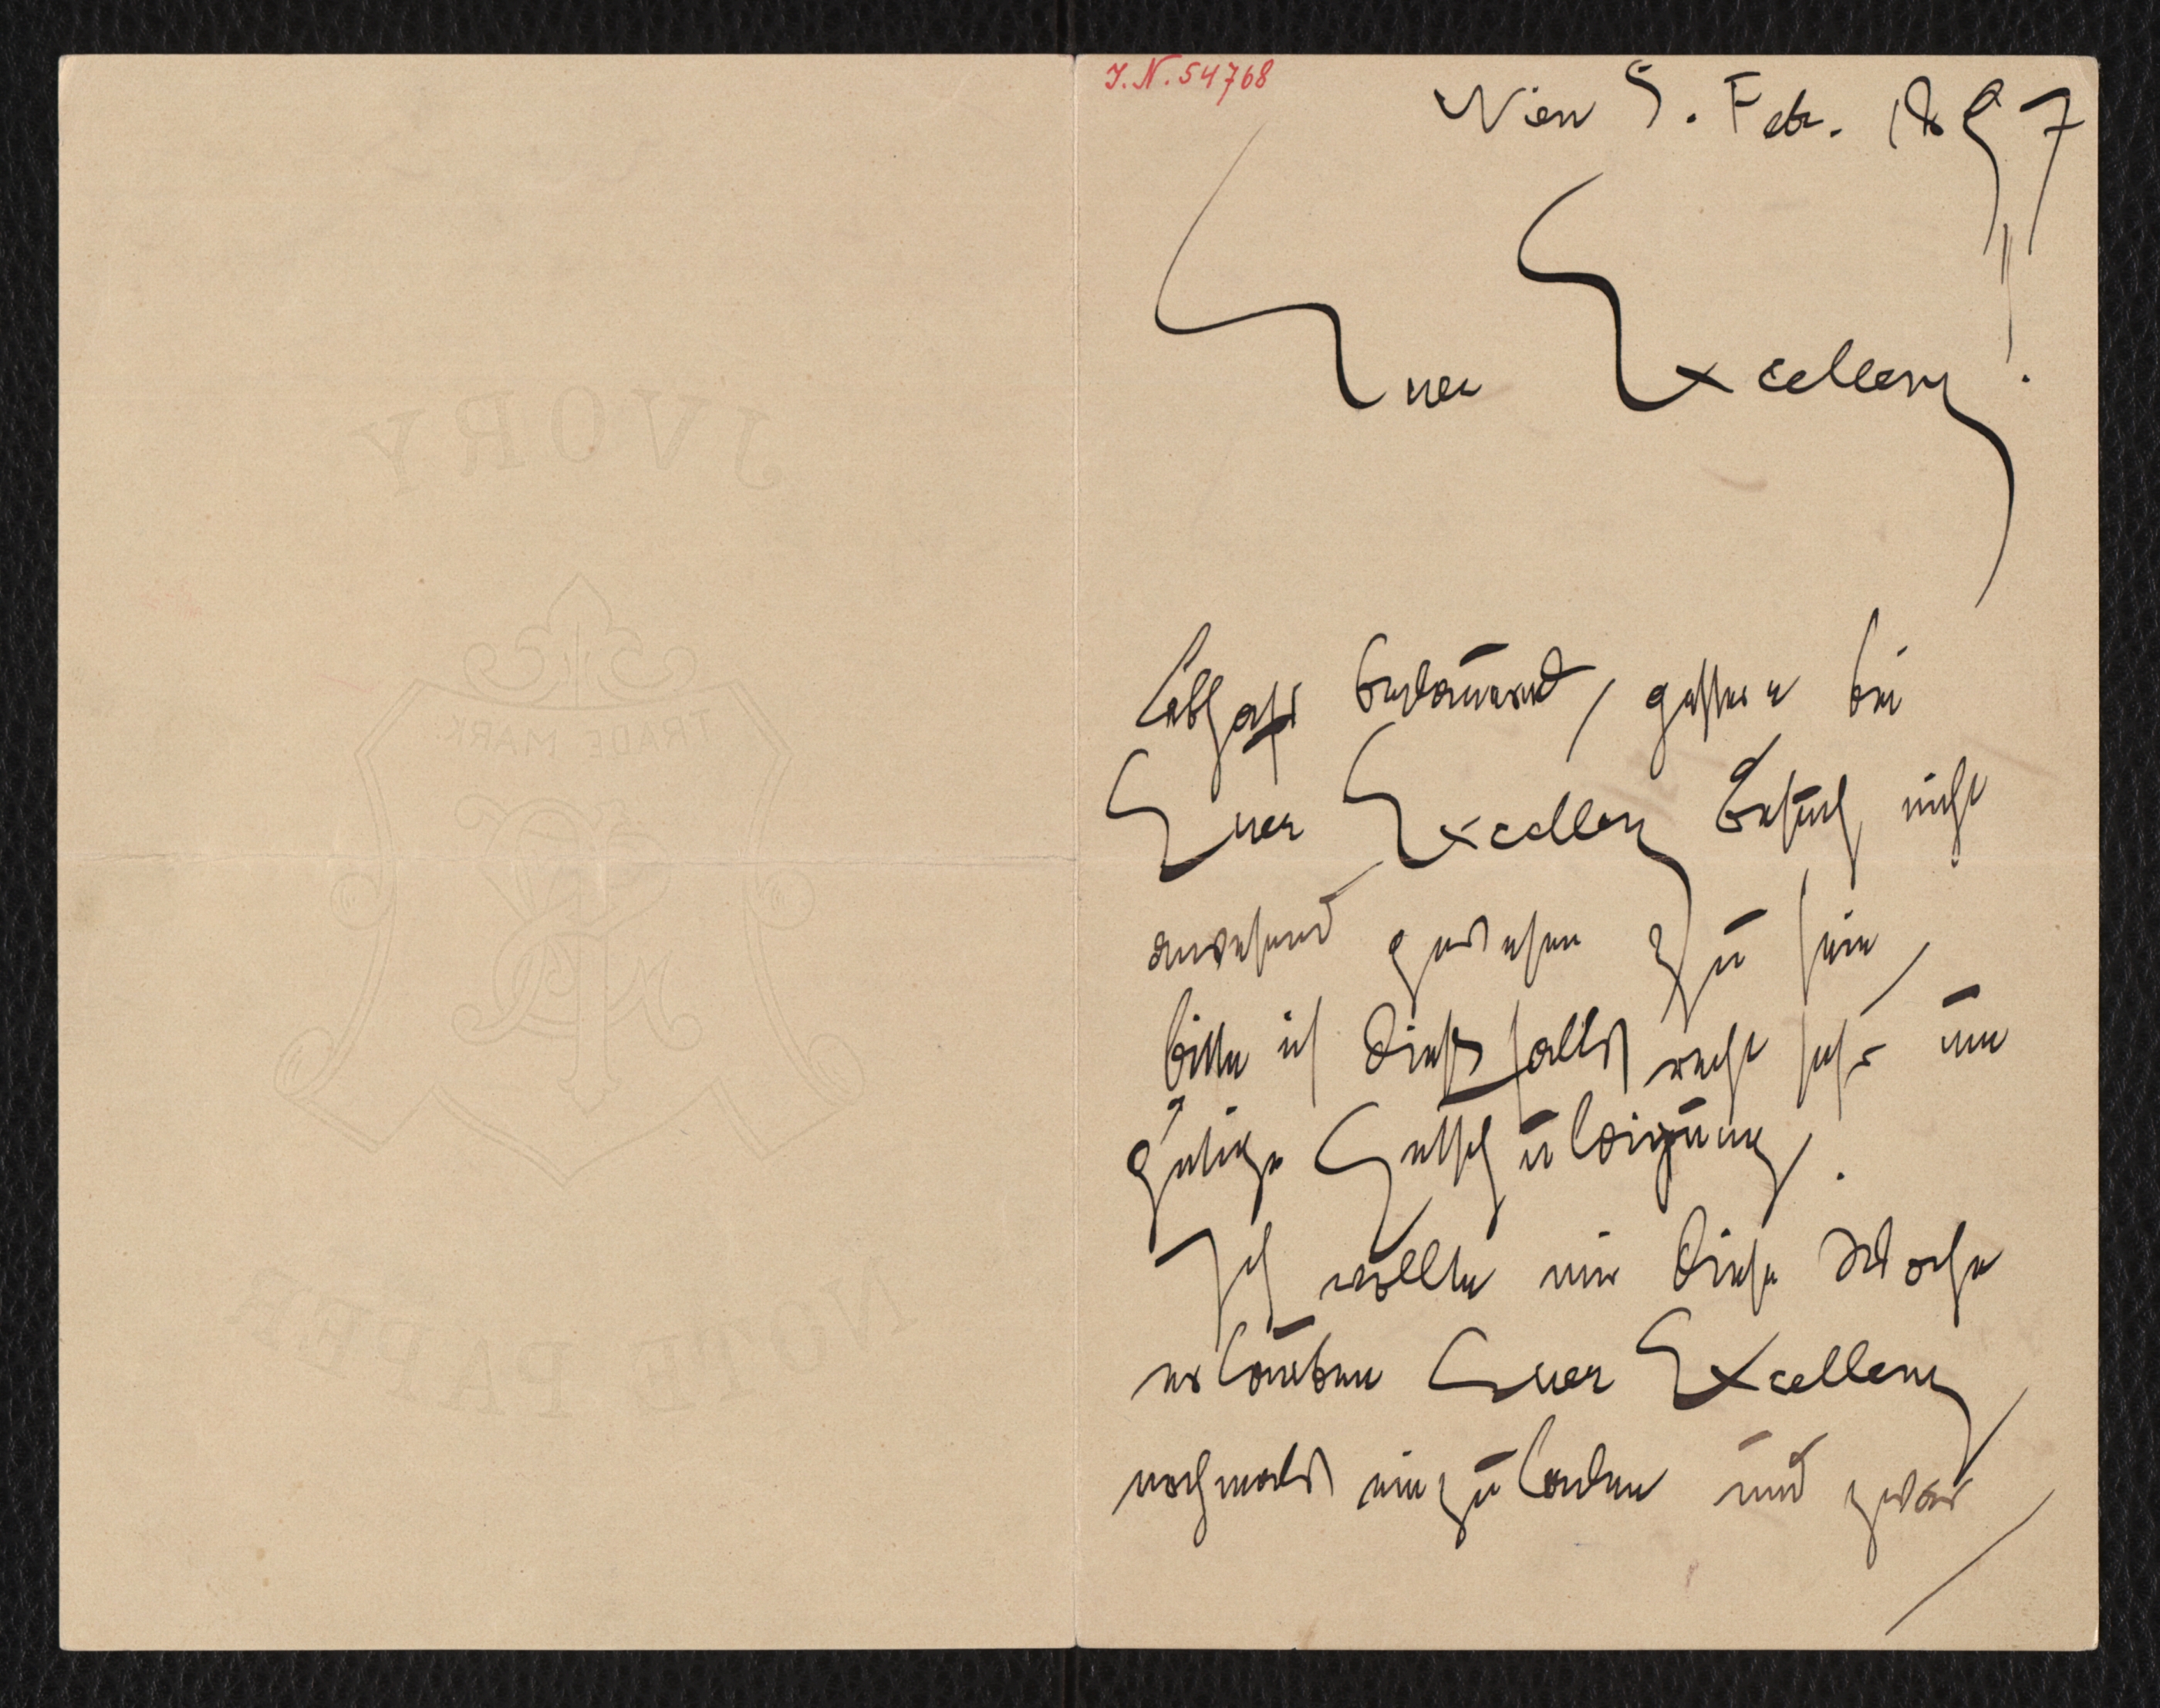 JVORY
TRADE MARK
NOTE PAPER
J. N. 54768
Wien 5. Feb. 1897
Euer Excellenz!
Lebhaft bedauernd, gestern bei
Euer Excellenz Besuch nicht
anwesend gewesen zu sein,
bitte ich diesfalls recht sehr um
gütige Entschuldigung.
Ich wollte mir diese Woche
erlauben Euer Excellenz
nochmals einzuladen und zwar